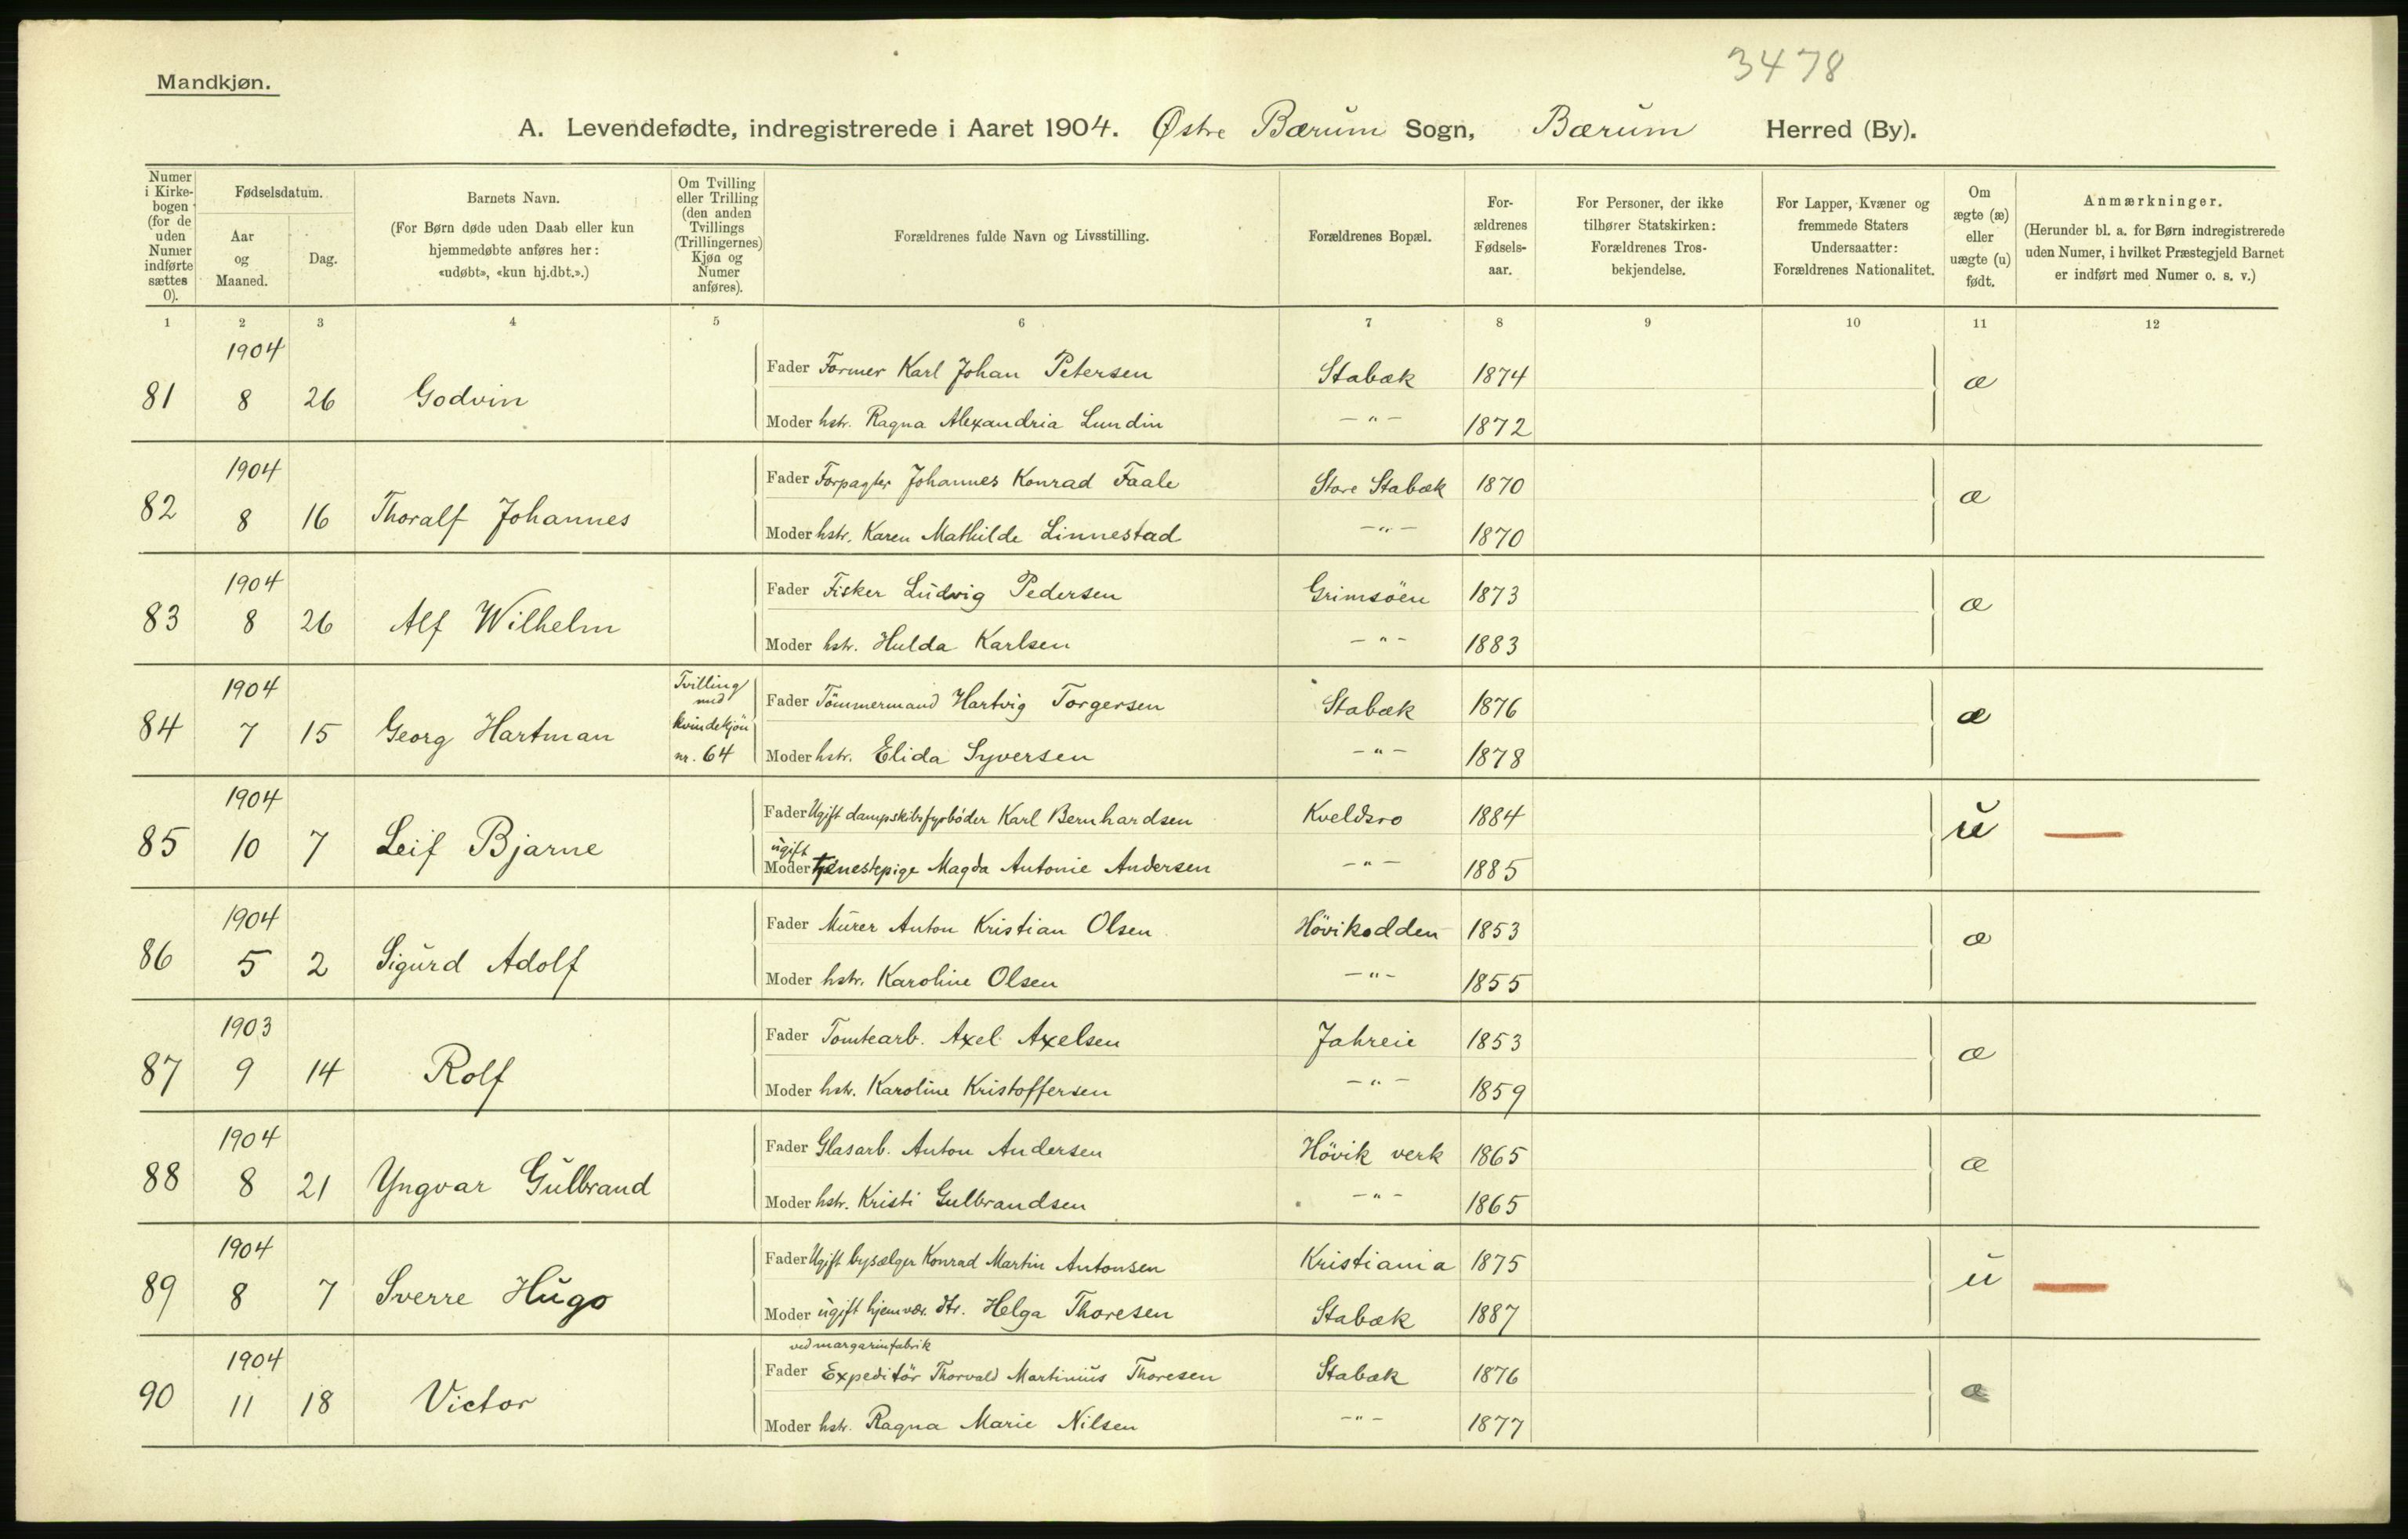 3478
Mandkjøn.
A. Levendefødte, indregistrerede i Aaret 1904. Østre Bærum Sogn, Bærum Herred (By).
Numer i Kirkebogen (for de uden Numer indførte sættes 0).
Fødselsdatum.
Aar og Maaned.
Dag.
Barnets Navn.
(For Børn døde uden Daab eller kun hjemmedøbte anføres her: «udøbt», «kun hj.dbt.».)
Om Tvilling eller Trilling (den anden Tvillings (Trillingernes) Kjøn og Numer anføres).
Forældrenes fulde Navn og Livsstilling.
Forældrenes Bopæl.
Forældrenes Fødselsaar.
For Personer, der ikke tilhører Statskirken: Forældrenes Trosbekjendelse.
For Lapper, Kvæner og fremmede Staters Undersaatter: Forældrenes Nationalitet.
Om ægte (æ) eller uægte (u) født.
Anmærkninger.
(Herunder bl. a. for Børn indregistrerede uden Numer, i hvilket Præstegjeld Barnet er indført med Numer o. s. v.)
1 2 3 4 5 6 7 8 9 10 11 12
1904
81 8 26 Godvin
Fader Former Karl Johan Petersen Stabæk 1874 æ
Moder hstr. Ragna Alexandria Lundin –"– 1872
1904
82 8 16 Thoralf Johannes
Fader Forpagter Johannes Konrad Faale Store Stabæk 1870 æ
Moder hstr. Karen Mathilde Linnestad –"– 1870
1904
83 8 26 Alf Wilhelm
Fader Fisker Ludvig Pedersen Grimsöen 1873 æ
Moder hstr. Hulda Karlsen –"– 1883
1904
84 7 15 Georg Hartman
Tvilling
med
kvindekjön
nr. 64
Fader Tömmermand Hartvig Torgersen Stabæk 1876 æ
Moder hstr. Elida Syversen –"– 1878
1904
85 10 7 Leif Bjarne
Fader Ugift dampskibsfyrböder Karl Bernhardsen Kveldsro 1884 u —
ugift
Moder tjenestepige Magda Antonie Andersen –"– 1885
1904
86 5 2 Sigurd Adolf
Fader Murer Anton Kristian Olsen Hövikodden 1853 æ
Moder hstr. Karoline Olsen –"– 1855
1903
87 9 14 Rolf
Fader Tomtearb. Axel Axelsen Jahreie 1853 æ
Moder hstr. Karoline Kristoffersen –"– 1859
1904
88 8 21 Yngvar Gulbrand
Fader Glasarb. Anton Andersen Hövik verk 1865 æ
Moder hstr. Kristi Gulbrandsen –"– 1865
1904
89 8 7 Sverre Hugo
Fader Ugift bysælger Konrad Martin Antonsen Kristiania 1875 u —
Moder ugift hjemvær. dtr. Helga Thoresen Stabæk 1887
1904
90 11 18 Victor
ved margarinfabrik
Fader Expeditör Thorvald Martinius Thoresen Stabæk 1876 æ
Moder hstr. Ragna Marie Nilsen –"– 1877